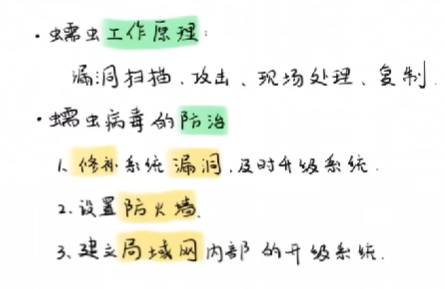 · 蠕虫工作原理:
漏洞扫描、攻击、现场处理、复制.
· 蠕虫病毒的防治
1. 修补系统漏洞.及时升级系统.
2. 设置防火墙.
3、建立局域网内部的升级系统.